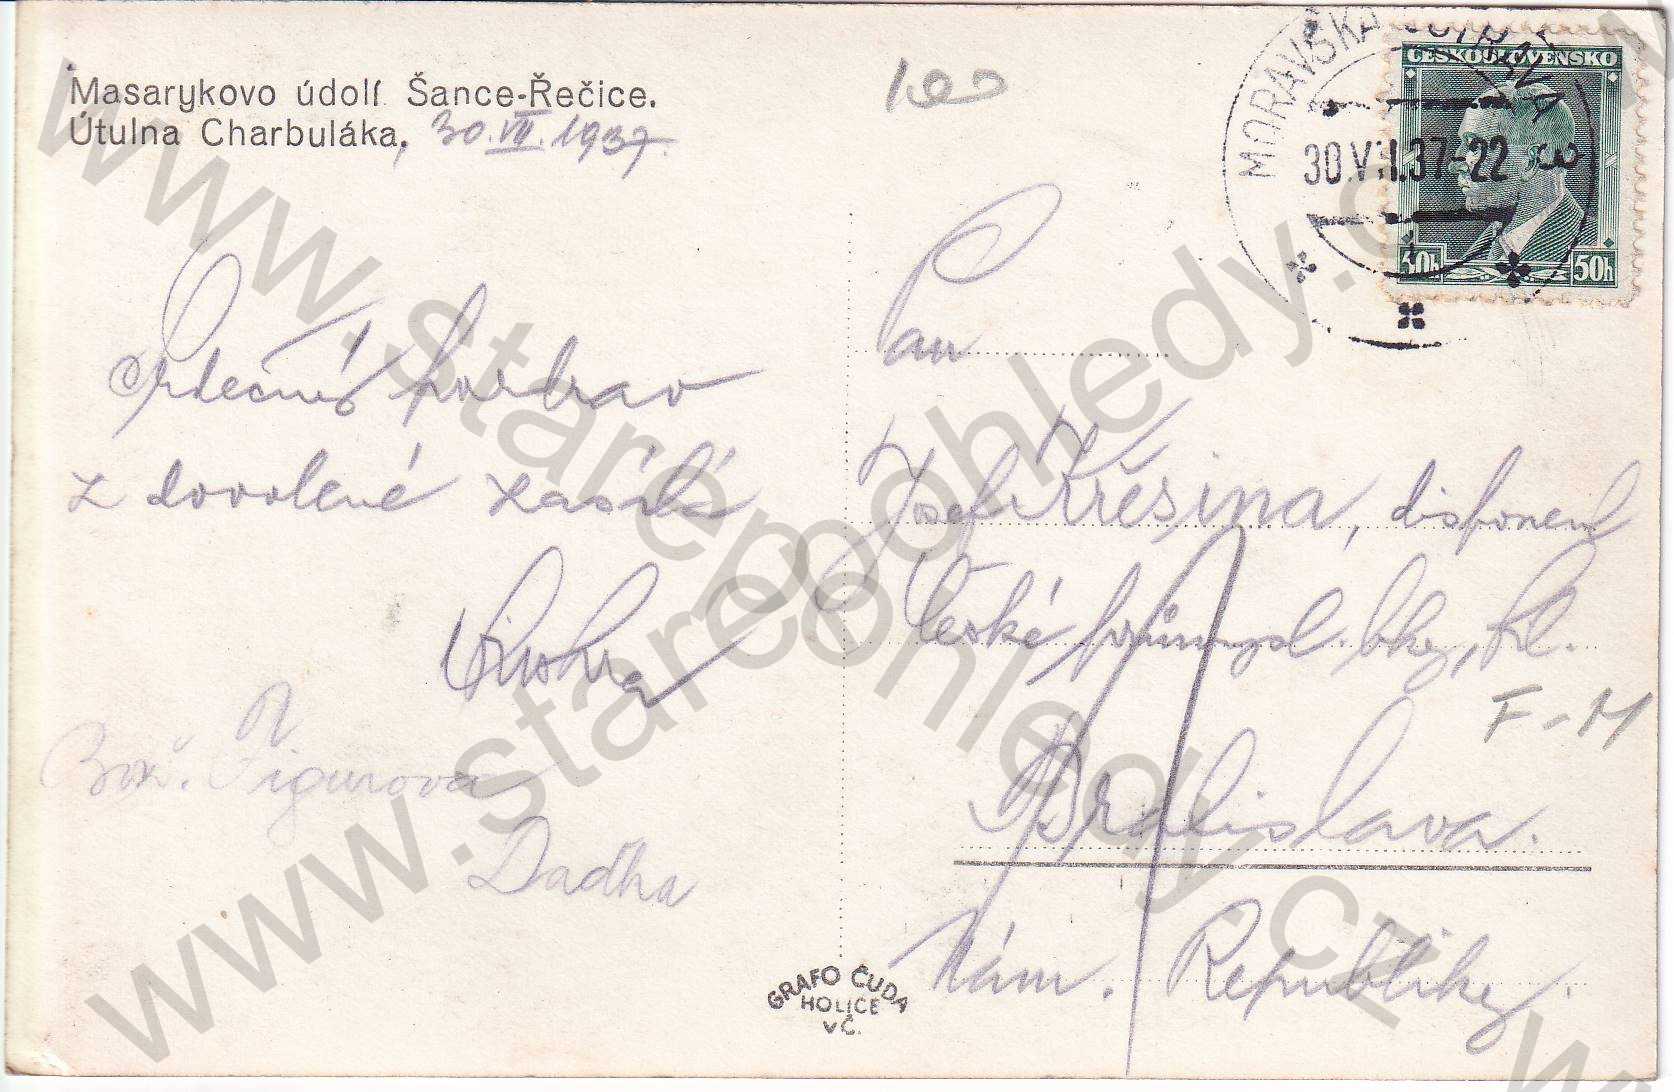 Masarykovo údolí Šance-Řečice.
Útulna Charbuláka, 30. VII. 1937.
Srdečný pozdrav
z dovolené zasílá
Bož. Figurova
Dadka
GRAFO ČUDA
HOLICE
VČ.
100
MORAVSKÁ OSTRAVA
30.VII.37-22
ČESKOSLOVENSKO
50h
Pan
Josef Křešina, disponent
České průmysl. bky, fil.
F-M
Bratislava.
Nám. Republiky.
www.starepohledy.cz
www.starepohledy.cz